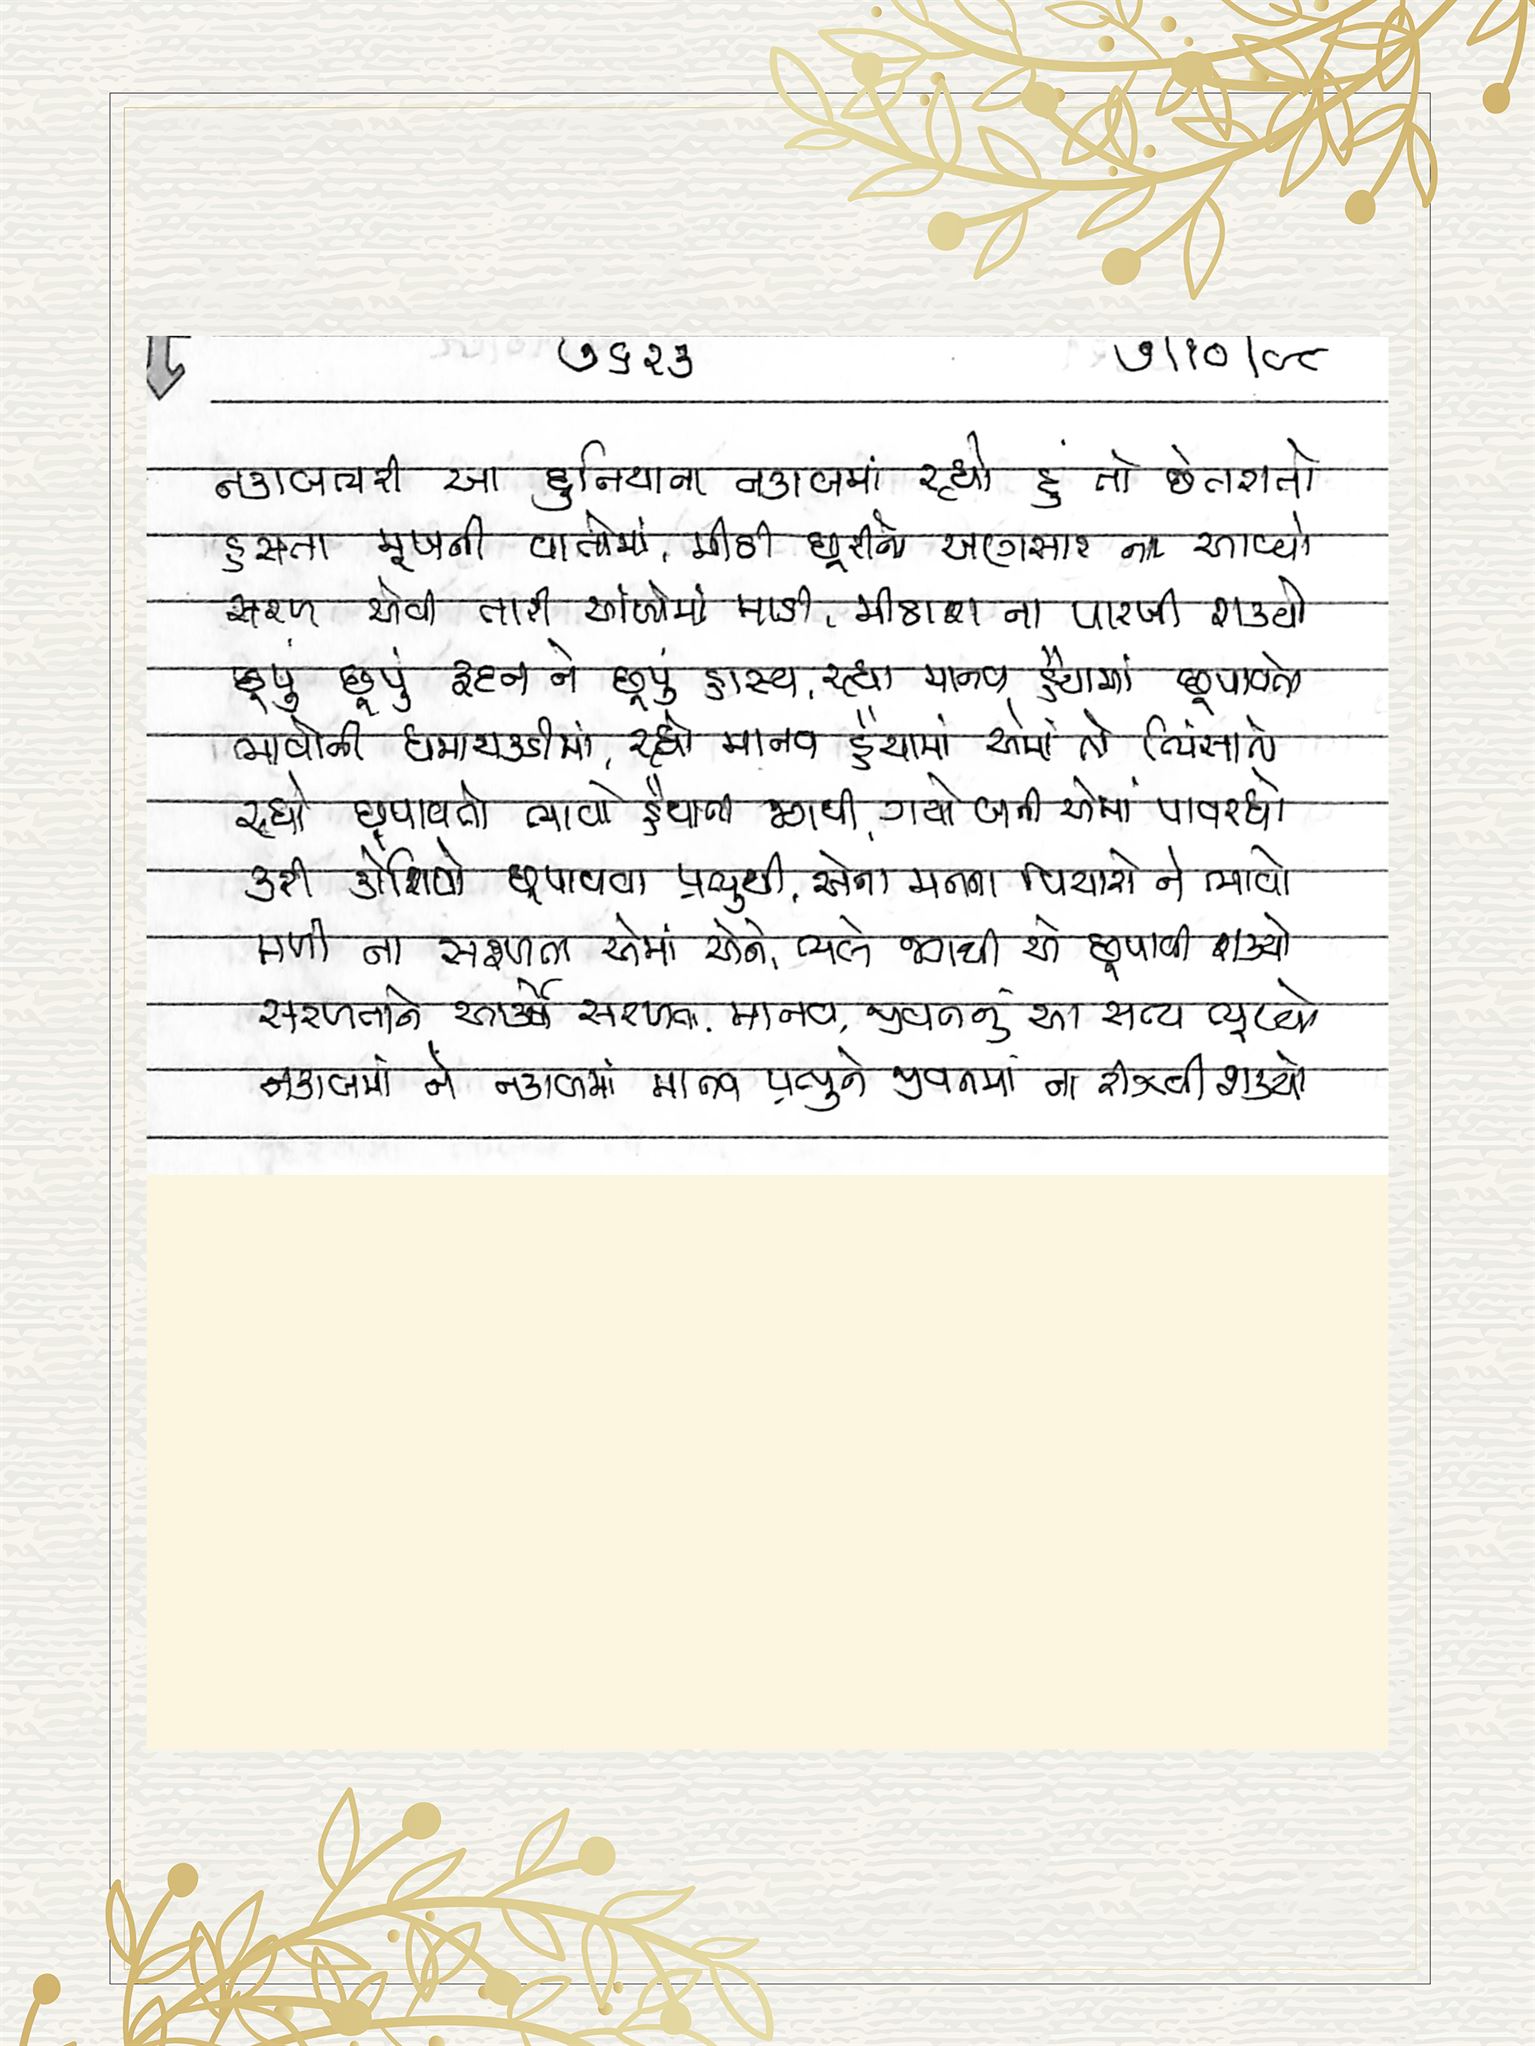 ૭૬૨૩ ૭/૧૦/૯૮
નકાબભરી આ દુનિયાના નકાબમાં રહ્યો હું તો છેતરાતો
હસતા મુખની વાતોમાં, મીઠી છૂરીનો અણસાર ના આવ્યો
સરળ એવી તારી આંખોમાં માડી, મીઠાશ ના પારખી શક્યો
છૂપું છૂપું રુદન ને છૂપું હાસ્ય, રહ્યો માનવ હૈયામાં છૂપાવતો
ભાવોની ધમાચકડીમાં, રહ્યો માનવ હૈયામાં એમાં તો
રહ્યો છૂપાવતો ભાવો હૈયાના જગથી, ગયો બની એમાં પાવરધો
કરી કોશિશો છૂપાવવા પ્રભુથી, એના મનના વિચારો ને ભાવો
મળી ના સફળતા એમાં એને, ભલે જગથી એ છૂપાવી શક્યો
સરળતાને સરળતા, માનવ, જીવનનું આ સત્ય ભૂલ્યો
નકાબમાં ને નકાબમાં માનવ પ્રભુને જીવનમાં ના રીઝવી શક્યો